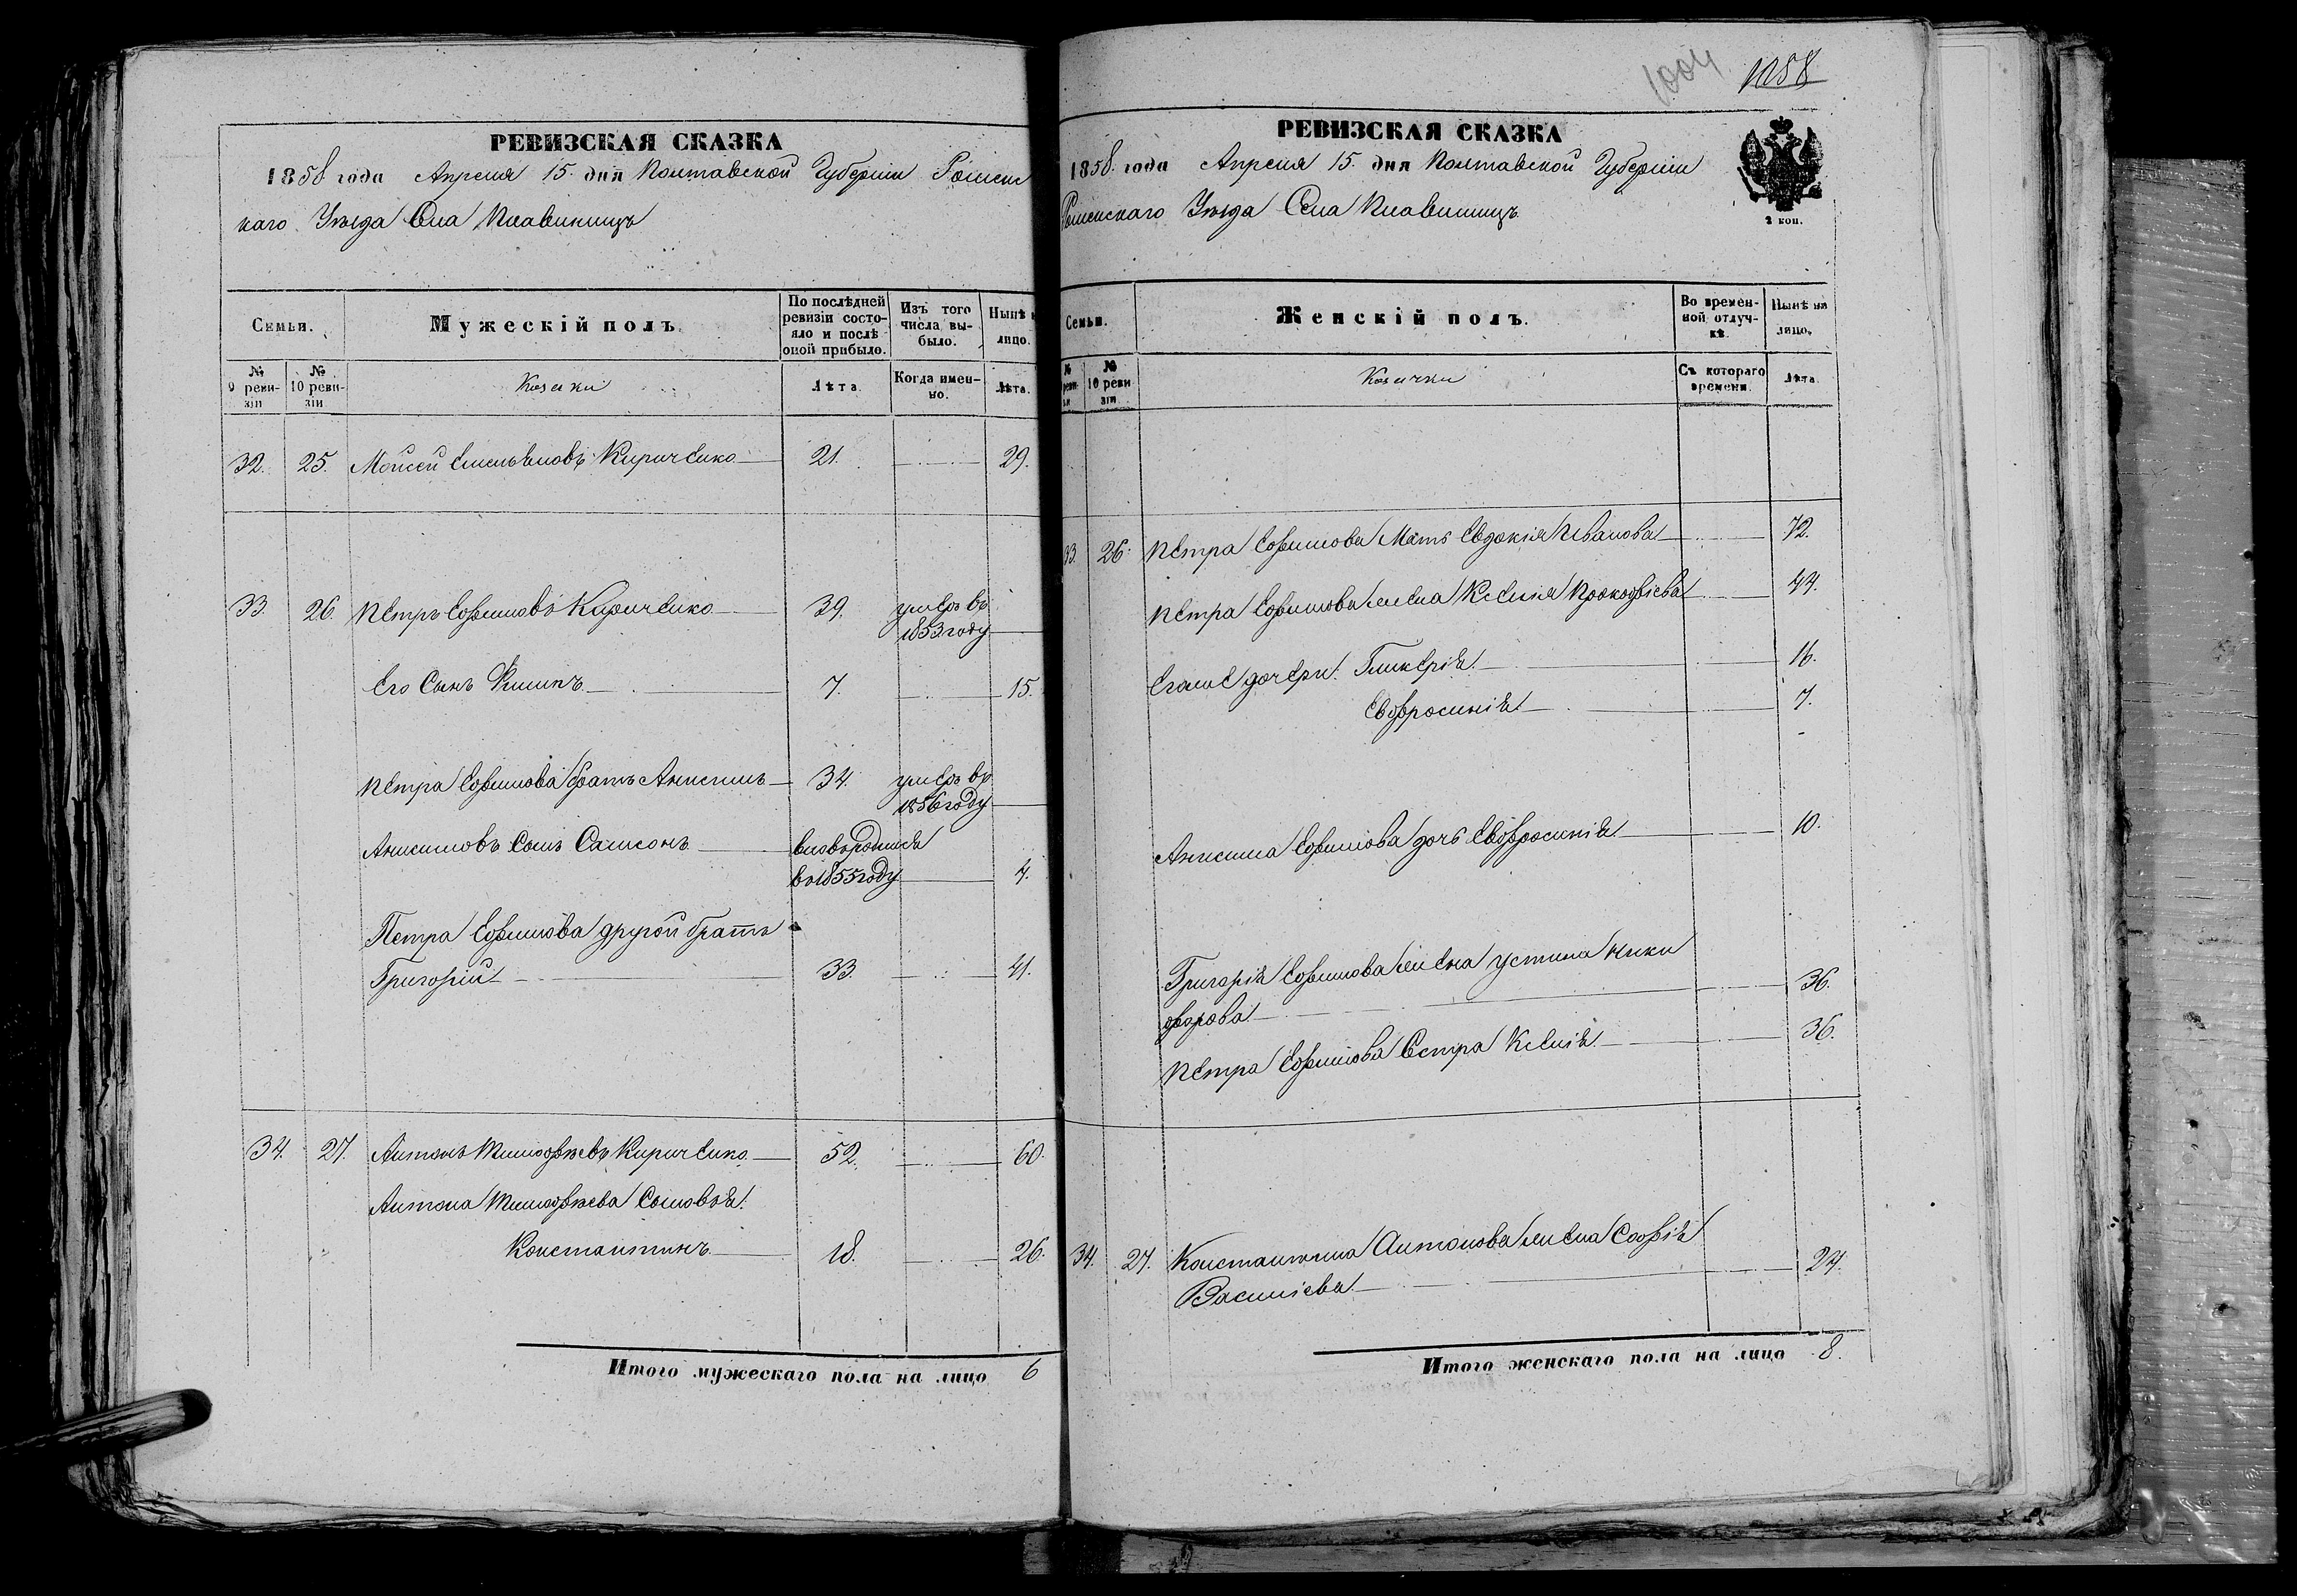 1004 1058
РЕВИЗСКАЯ СКАЗКА
1858 года Апреля 15. дня Полтавской Губерніи Роменс
каго Уѣзда Села Плавинищъ
Семьи.
Мужескій полъ.
По послѣдней ревизіи состояло и послѣ оной прибыло.
Изъ того числа выбыло.
Нынѣ на лицо.
№ 9 ревизіи
№ 10 ревизіи
Козаки
Лѣта.
Когда именно.
Лѣта.
32. 25. Мойсей Емельяновъ Кириченко 21. 29.
33. 26. Петръ Ефимовъ Кириченко 39. умеръ въ
1853 году
Его Сынъ Филипъ 7. 15.
Петра Ефимова братъ Анисимъ 34. умеръ въ
1856 году
Анисимовъ Сынъ Самсонъ вновьродился
в 1855 году 4.
Петра Ефимова другой братъ
Григорій 33. 41.
34. 27. Антонъ Тимофѣевъ Кириченко 52. 60.
Антона Тимофѣева Сыновья:
Константинъ 18. 26.
Итого мужескаго пола на лицо 6
РЕВИЗСКАЯ СКАЗКА
1858. года Апреля 15. дня Полтавской Губерніи
Роменскаго Уѣзда Села Плавинищъ
2 коп.
Семьи.
Женскій полъ.
Во временной отлучкѣ.
Нынѣ на лицо.
№ ревизіи
№ 10 ревизіи
Козачки
Съ котораго времени.
Лѣта.
33. 26. Петра Ефимова Мать Евдокія Иванова 72.
Петра Ефимова жена Ксенія Прокофіева 44.
Егоже дочери: Гликерія 16.
Евфросинія 7.
Анисима Ефимова дочь Евфросинія 10.
Григорія Ефимова жена Устина Ники
форова 36.
Петра Ефимова Сестра Ксенія 36.
34. 27. Константина Антонова жена Софія
Василіева 24.
Итого женскаго пола на лицо 8.